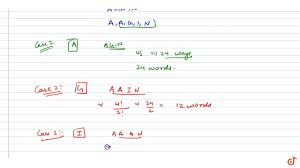 A, A, G, I, N
Case 1 A AGIN
4! ⇒ 24 ways
24 words.
Case 2:- G AAIN
→ 4!/2! → 24/2 = 12 words
Case 3:- I AAGN